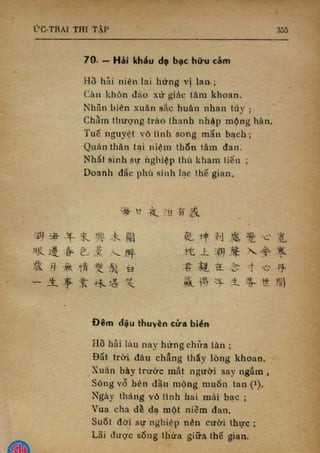 ỨC-TRAI THI TẬP 355
70. — Hải khẩu dạ bạc hữu cảm
Hồ hải niên lai hứng vị lan ;
Càn khôn đáo xứ giác tâm khoan.
Nhãn biên xuân sắc huân nhan túy ;
Chẩm thượng trào thanh nhập mộng hàn.
Tuế nguyệt vô tình song mấn bạch ;
Quân thân tại niệm thốn tâm đan.
Nhất sinh sự nghiệp thù kham tiếu ;
Doanh đắc phù sinh lạc thế gian.
海口夜泊有感
湖海年來興未闌 乾坤到處覺心寬
眼邊春色薰人醉 枕上潮聲入夢寒
歲月無情雙鬢白 君親在念寸心丹
一生事業殊堪笑 贏得浮生落世間
Đêm đậu thuyền cửa biển
Hồ hải lâu nay hứng chửa tàn ;
Đất trời đâu chẳng thấy lòng khoan.
Xuân bày trước mắt người say ngắm ,
Sóng vỗ bên đầu mộng muốn tan (¹).
Ngày tháng vô tình hai mái bạc ;
Vua cha để dạ một niềm đan.
Suốt đời sự nghiệp nên cười thực ;
Lãi được sống thừa giữa thế gian.